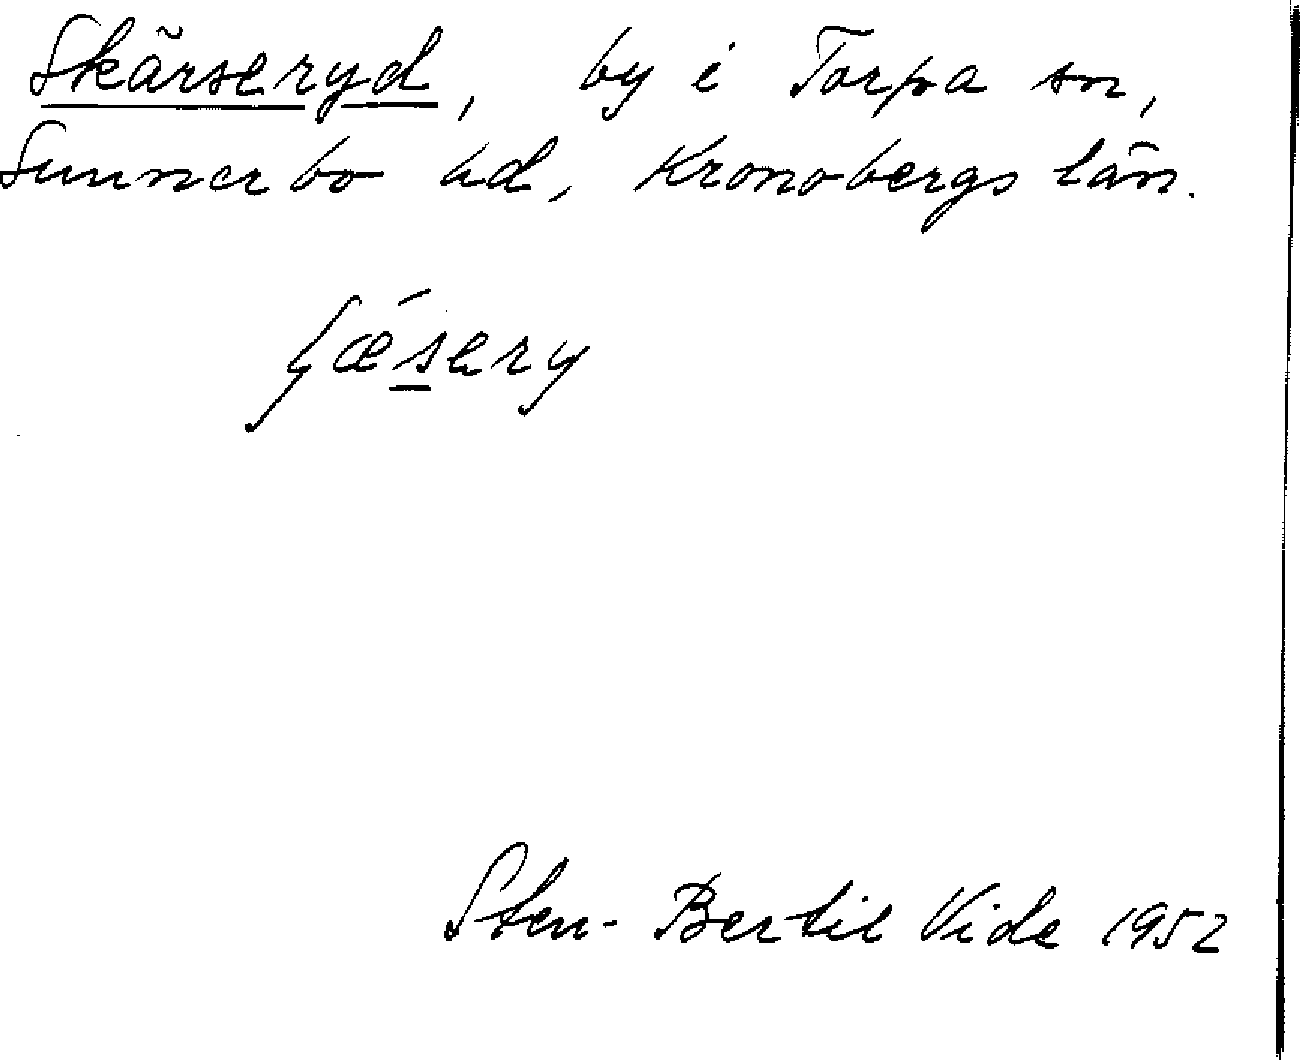 Skärseryd, by i Torpa sn,
Sunnerbo hd, Kronobergs län.
ʃǽsery
Sten-Bertil Vide 1952